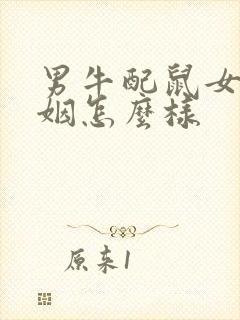 男牛配鼠女
姻怎麼樣
原来1